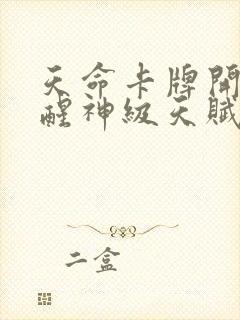 天命卡牌開
醒神級天賦
二盒